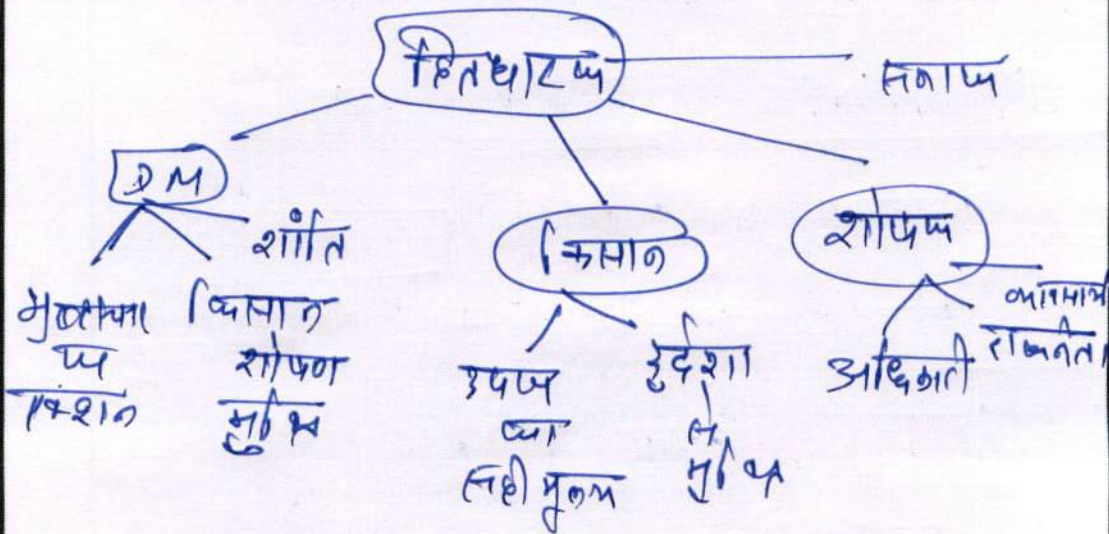 हितधारक
समाज
DM
शांति
किसान
शोषक
किसान
शोषण
मुक्ति
उपज
का
सही मूल्य
दुर्दशा
से
मुक्ति
अधिकारी
राजनेता